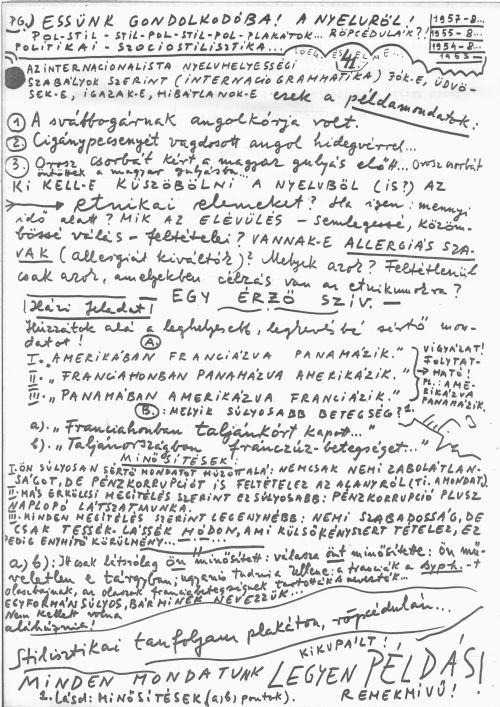 PG. ESSÜNK GONDOLKODÓBA! A NYELVRŐL! 1957-8...
POL-STIL - STIL-POL-STIL-POL-PLAKÁTOK... RÖPCÉDULÁK?!! 1955-8...
POLITIKAI - SZOCIOSTILISZTIKA... 1954-8...
4
AZ INTERNACIONALISTA NYELVHELYESSÉGI
SZABÁLYOK SZERINT (INTERNACIÓGRAMMATIKA) JÓK-E, ÜDVÖ-
SEK-E, IGAZAK-E, HIBÁTLANOK-E ezek a példamondatok:
1 A svábbogárnak angolkórja volt.
2. Cigánypecsenyét vagdosott angol hidegvérrel...
3. Orosz csorbát kért a magyar gulyás előtt... Orosz csorbát
öntöttek a magyar gulyásba...
KI KELL-E KÜSZÖBÖLNI A NYELVBŐL (IS?) AZ
etnikai elemeket? Ha igen: mennyi
idő alatt? MIK AZ ELÉVÜLÉS - semlegessé, közöm-
bössé válás - feltételei? VANNAK-E ALLERGIÁS SZA-
VAK (allergiát kiváltók)? Melyek azok? Feltétlenül
csak azok, amelyekben célzás van az etnikumokra?
EGY ÉRZŐ SZÍV. -
Házi feladat!
Húzzátok alá a leghelyesebb, legkevésbé sértő mon-
datot! A.
I. "AMERIKÁBAN FRANCIÁZVA PANAMÁZIK."
II. "FRANCIAHONBAN PANAMÁZVA AMERIKÁZIK."
III. "PANAMÁBAN AMERIKÁZVA FRANCIÁZIK."
VIGYÁZAT!
FOLYTAT-
HATÓ!
PL.: AME-
RIKÁZVA
PANAMÁZIK.
B.: MELYIK SÚLYOSABB BETEGSÉG? 2.
a). "Franciahonban taljánkórt kapott..."
b). "Taljánországban francúz-betegséget..."
MINŐSÍTÉSEK:
I. ÖN SÚLYOSAN SÉRTŐ MONDATOT HÚZOTT ALÁ!: NEMCSAK NEMI ZABOLÁTLAN-
SÁGOT, DE PÉNZKORRUPCIÓT IS FELTÉTELEZ AZ ALANYRÓL (TI. A MONDAT).
II. MÁS ERKÖLCSI MEGÍTÉLÉS SZERINT EZ SÚLYOSABB: PÉNZKORRUPCIÓ PLUSZ
NAPLOPÓ LÁTSZATMUNKA.
III. MINDEN MEGÍTÉLÉS SZERINT LEGENYHÉBB: NEMI SZABADOSSÁG, DE
CSAK TESSÉK-LÁSSÉK MÓDON, AMI KÜLSŐKÉNYSZERT TÉTELEZ, EZ
PEDIG ENYHÍTŐ KÖRÜLMÉNY...
a), b): Itt csak látszólag ön minősített: válasza önt minősítette: Ön mű-
veletlen e tárgyban; ugyanis tudnia kellene: a franciák a syph.-t
olaszbajnak, az olaszok franciabetegségnek tartották s nevezték...
EGYFORMÁN SÚLYOS, BÁRMINEK NEVEZZÜK...
Nem kellett volna
aláhúznia!
Stilisztikai tanfolyam plakáton, röpcédulán...
KIKUPÁLT!
MINDEN MONDATUNK LEGYEN PÉLDÁS!
2. Lásd: MINŐSÍTÉSEK (a, b, pontok). REMEKMÍVŰ!